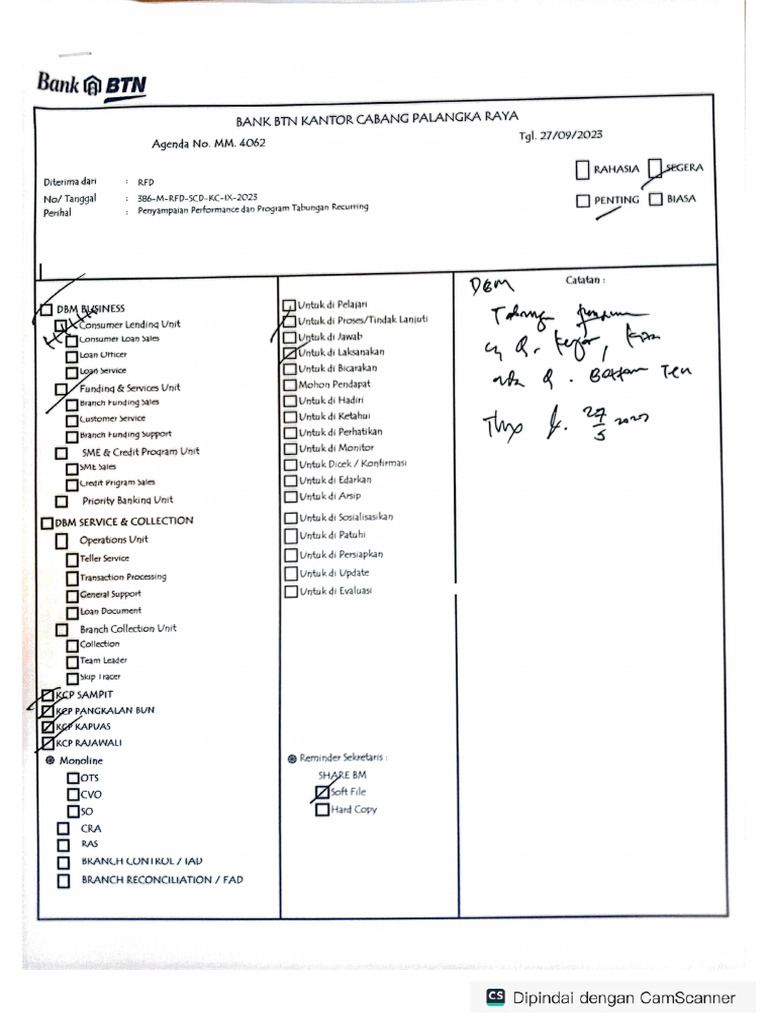 Bank BTN
BANK BTN KANTOR CABANG PALANGKA RAYA
Agenda No. MM. 4062
Tgl. 27/09/2023
RAHASIA SEGERA
Diterima dari : RFD
No/ Tanggal : 386-M-RFD-SCD-KC-IX-2023
PENTING BIASA
Perihal : Penyampaian Performance dan Program Tabungan Recurring
DBM BUSINESS
Consumer Lending Unit
Consumer Loan Sales
Loan Officer
Loan Service
Funding & Services Unit
Branch Funding Sales
Customer Service
Branch Funding Support
SME & Credit Program Unit
SME Sales
Credit Prigram Sales
Priority Banking Unit
DBM SERVICE & COLLECTION
Operations Unit
Teller Service
Transaction Processing
General Support
Loan Document
Branch Collection Unit
Collection
Team Leader
Skip Tracer
KCP SAMPIT
KCP PANGKALAN BUN
KCP KAPUAS
KCP RAJAWALI
Monoline
OTS
CVO
SO
CRA
RAS
BRANCH CONTROL / IAD
BRANCH RECONCILIATION / FAD
Untuk di Pelajari
Untuk di Proses/Tindak Lanjuti
Untuk di Jawab
Untuk di Laksanakan
Untuk di Bicarakan
Mohon Pendapat
Untuk di Hadiri
Untuk di Ketahui
Untuk di Perhatikan
Untuk di Monitor
Untuk Dicek / Konfirmasi
Untuk di Edarkan
Untuk di Arsip
Untuk di Sosialisasikan
Untuk di Patuhi
Untuk di Persiapkan
Untuk di Update
Untuk di Evaluasi
Reminder Sekretaris :
SHARE BM
Soft File
Hard Copy
Catatan :
DBM
CS Dipindai dengan CamScanner